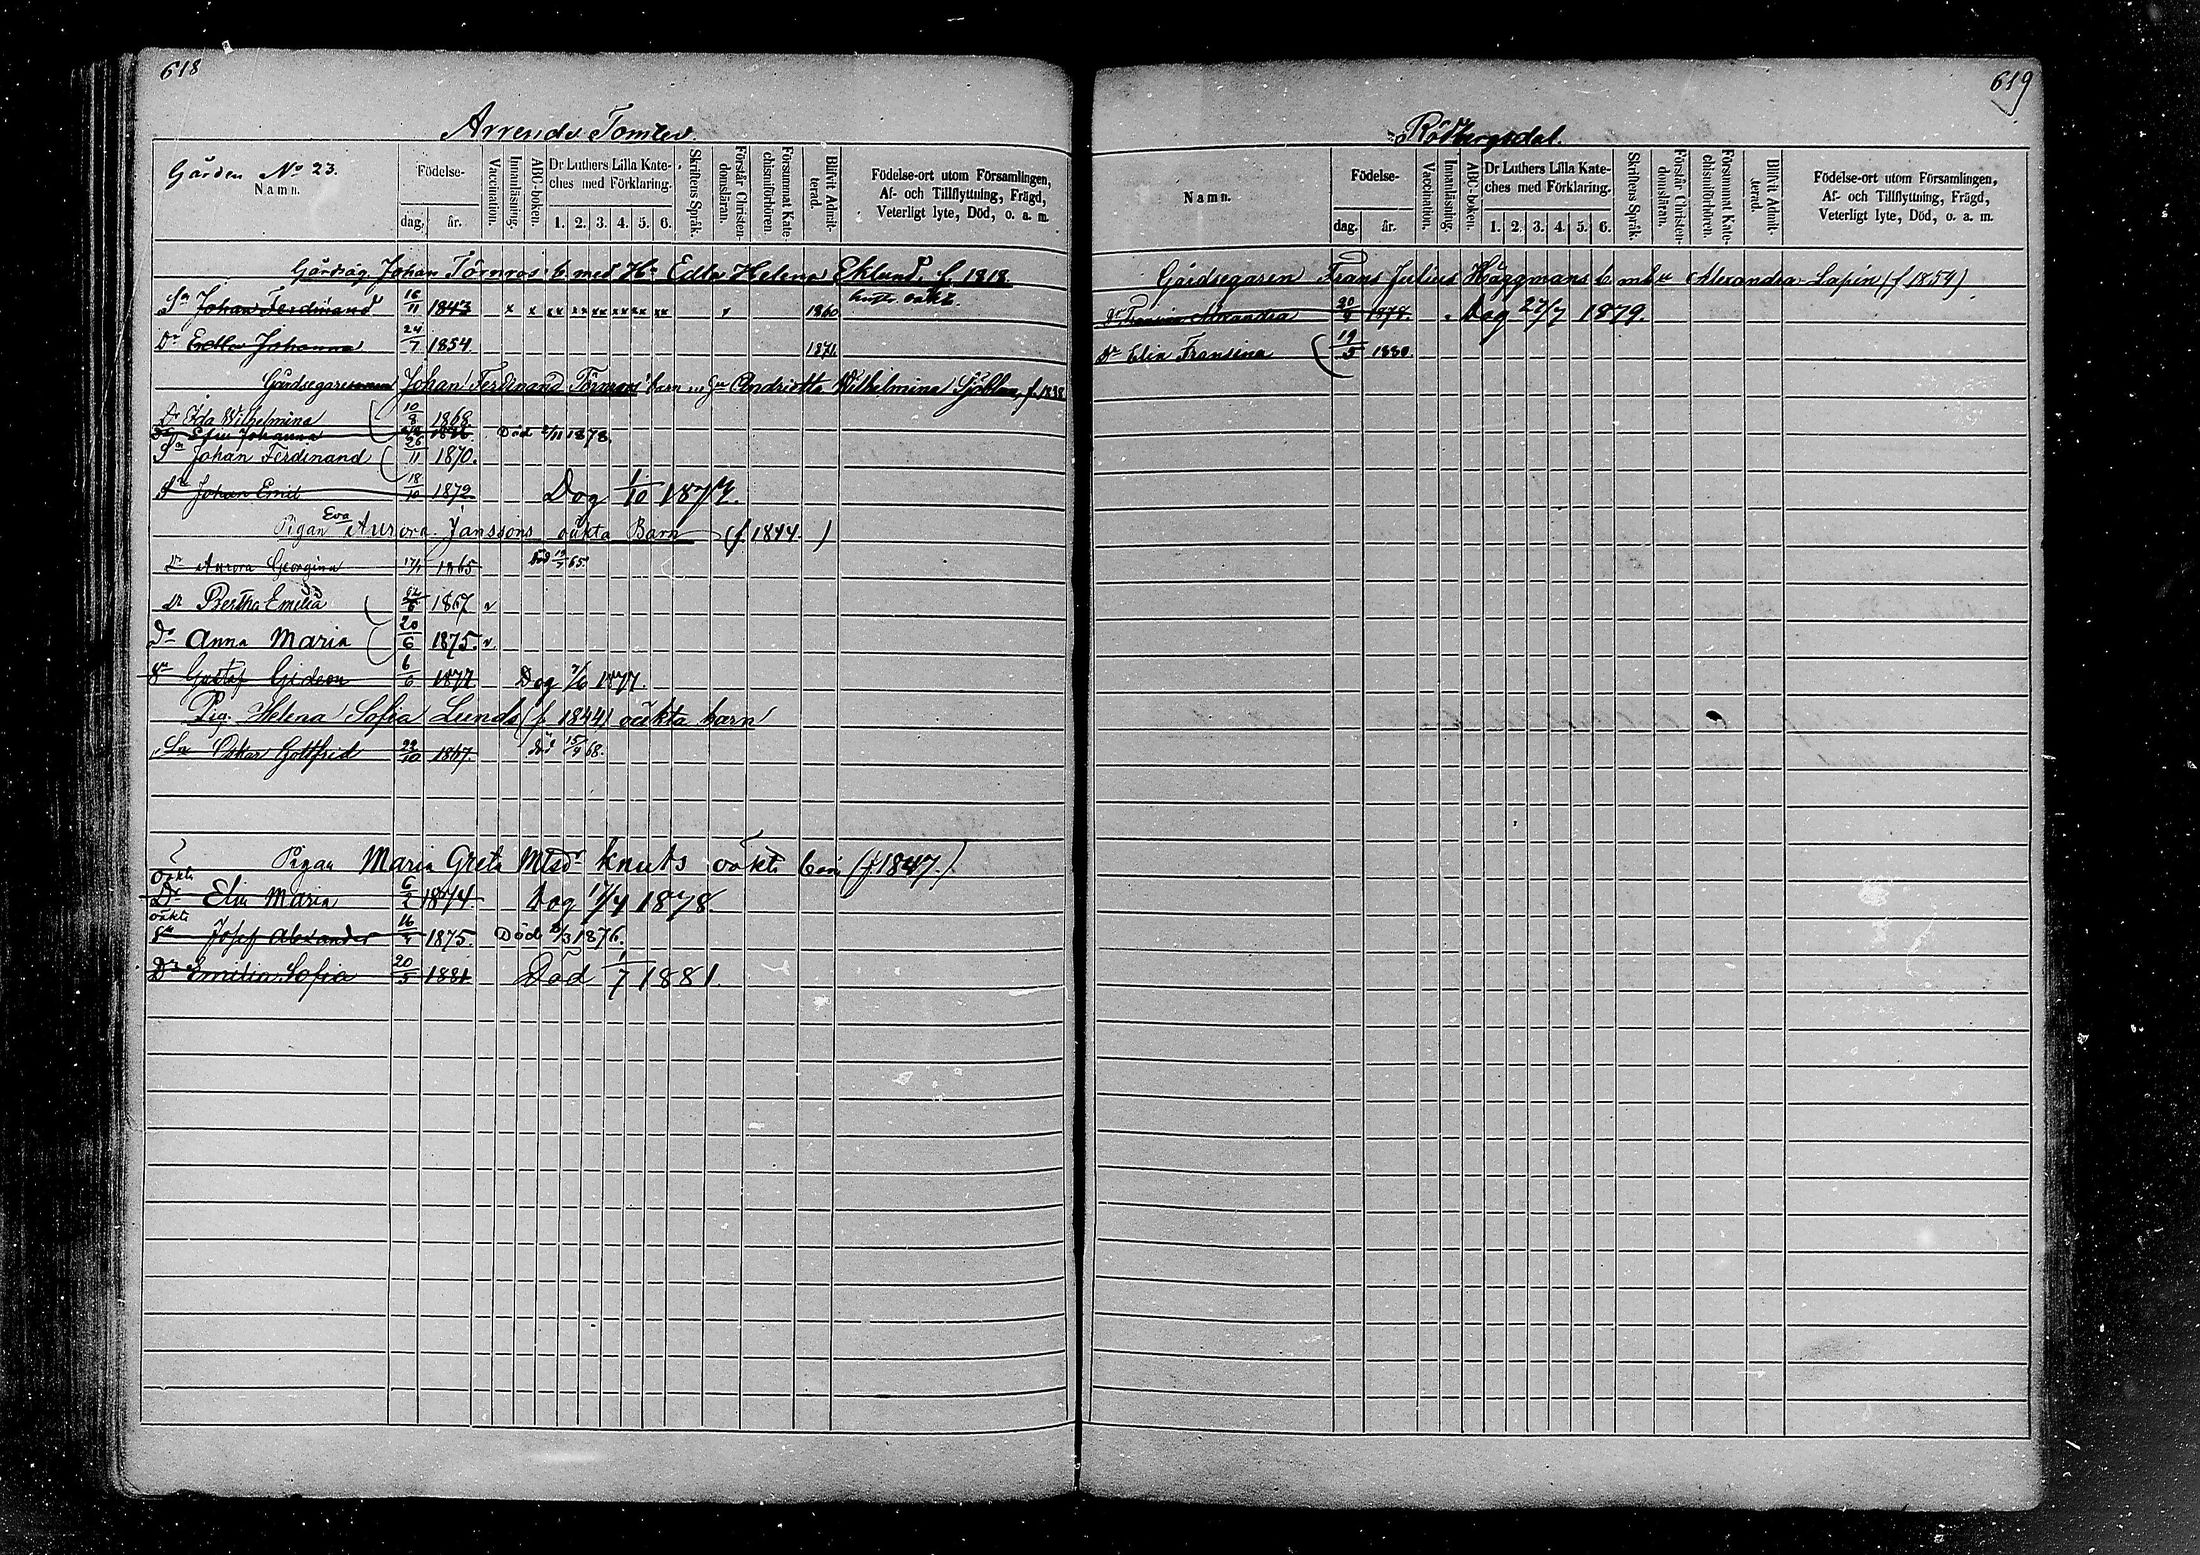 618
Arrende Tomter.
Gården No 23.
Namn.
Födelse-
dag.
år.
Vaccination.
Innanläsning.
ABC-boken.
Dr Luthers Lilla Kate-
ches med Förklaring.
1. 2. 3. 4. 5. 6.
Skriftens Språk.
Förstår Christen-
domsläran.
Försummat Kate-
chismiförhören
Blifvit Admit-
terad.
Födelse-ort utom Församlingen,
Af- och Tillflyttning, Frägd,
Veterligt lyte, Död, o. a. m.
Gårdsäg. Johan Törnros b. med Hu Edla Helena Eklund, f. 1818.
Sn Johan Ferdinand 16/11 1843 x x xx xx xx xx xx xx 1860
Dr Edla Johanna 24/7 1854. 1871.
Gårdsegaremannen Johan Ferdinand Törnros barn Andriette Wilhelmina Sjöblom, f. 1838
Dr Ida Wilhelmina 10/8 1868
Dr Johanna Död 1878.
Sn Johan Ferdinand 26/11 1870.
Sn Johan Emil 18/10 1872 Dog 1/10 1874.
Pigan Eva Aurora Janssons oäkta Barn (f. 1844. )
Dr Aurora Georgina 1865 död 65
Dr Bertha Emilia 1867 v
Dr Anna Maria 20/6 1875. v.
Sn Gustaf Gideon 6/6 1877 Dog 7/6 1877.
Pig. Helena Sofia Lunds (f. 1844) oäkta barn
Sn Oskar Gottfrid 22/10 1867. död 15/9 68.
Pigan Maria Greta Mtsdr Knuts oäkt barn (f. 1847.)
oäkta
Dr Elin Maria 6/2 1874. Dog 17/4 1878
oäkta
Sn Josef Alexander 1875. Död 2/3 1876.
Dr Emilia Sofia 20/5 1881 Död 1/7 1881.
619
Rödbergsdal.
Namn.
Födelse-
dag.
år.
Vaccination.
Innanläsning.
ABC-boken.
Dr Luthers Lilla Kate-
ches med Förklaring.
1. 2. 3. 4. 5. 6.
Skriftens Språk.
Förstår Christen-
domsläran.
Försummat Kate-
chismiförhören.
Blifvit Admit-
terad.
Födelse-ort utom Församlingen,
Af- och Tillflyttning, Frägd,
Veterligt lyte, Död, o. a. m.
Gårdsegaren Frans Julius Häggmans b. m. hu Alexandra Lapin (f 1854)
Dr Fransina Alexandra 1878. Dog 27/7 1879.
Dr Elin Fransina 19/5 1880.